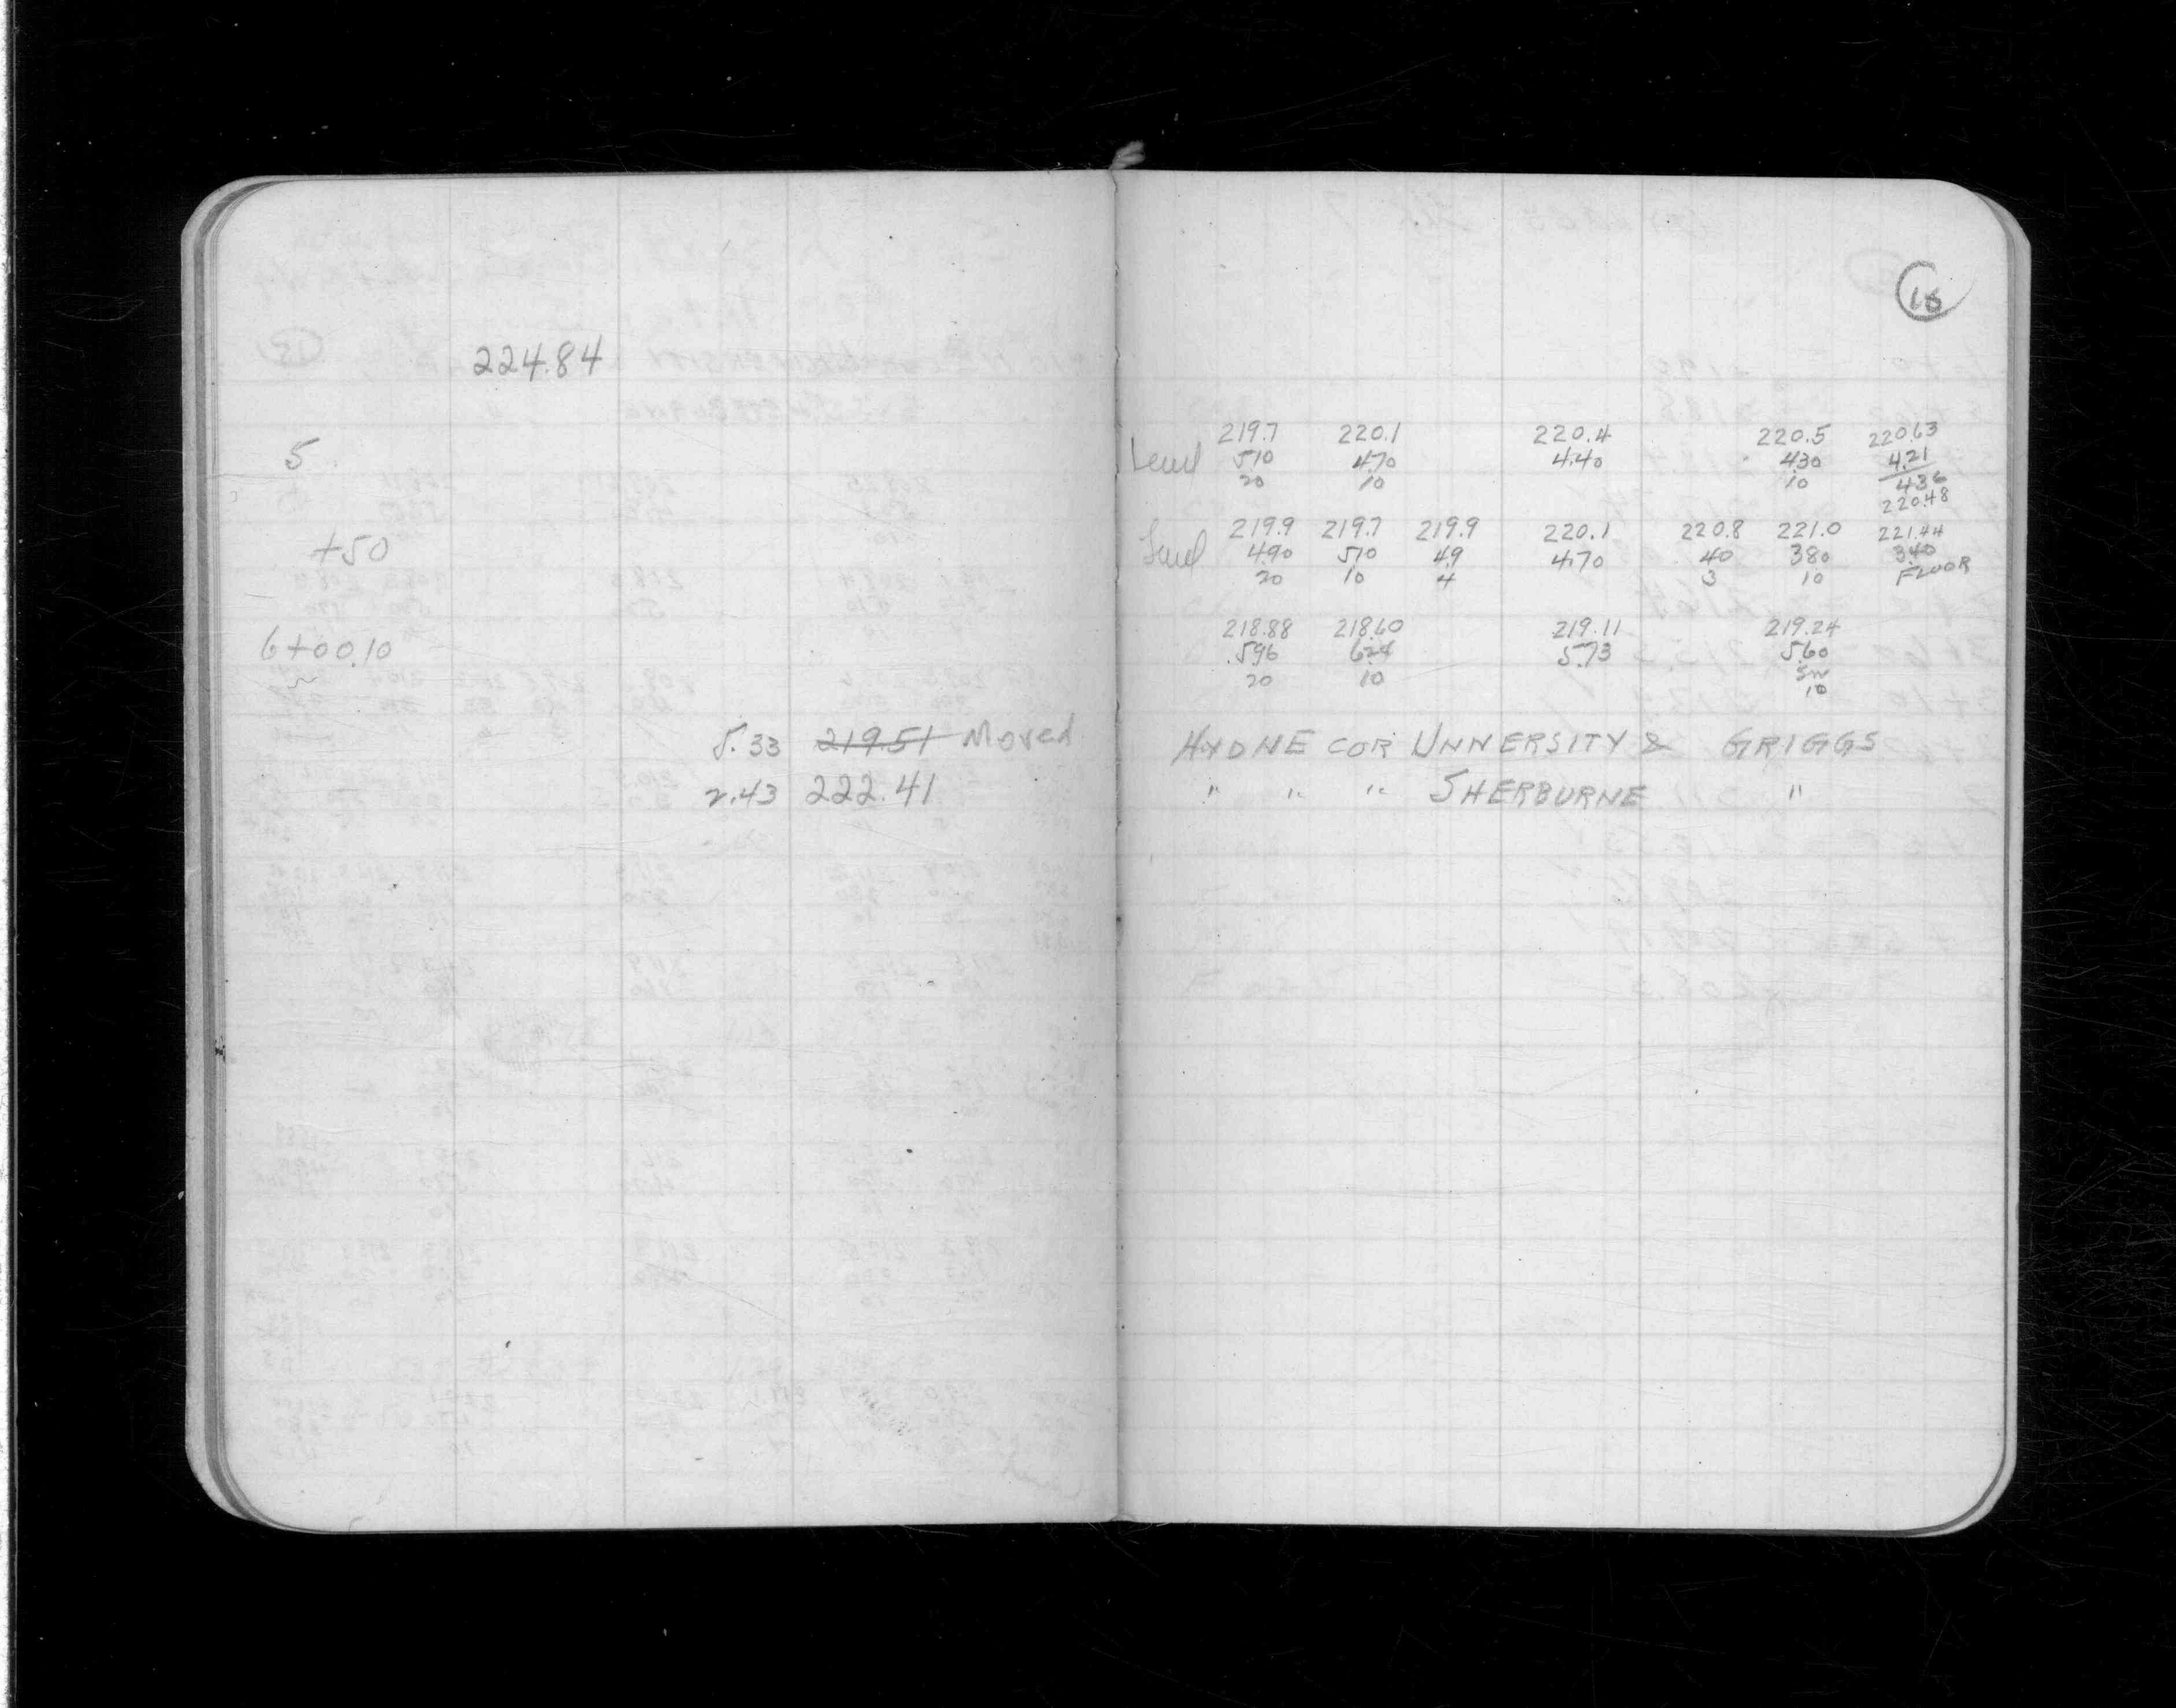 224.84
5
+50
6+00.10
5.33 219.51 Moved
2.43 222.41
16
219.7 220.1 220.4 220.5 220.63
Level 510 470 4.40 430 4.21
20 10 10 436
220.48
219.9 219.7 219.9 220.1 220.8 221.0 221.44
Level 490 510 49 470 40 380 340
20 10 4 3 10 FLOOR
218.88 218.60 219.11 219.24
596 624 5.73 560
20 10 SW
10
HYD NE COR UNIVERSITY & GRIGGS
" " " SHERBURNE "